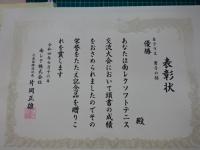 表彰状
優勝
殿
あなたは南レクソフトテニス
交流大会において頭書の成績
をおさめられましたのでその
栄誉をたたえ記念品を贈りこ
れを賞します
南レク株式会社
片岡正雄